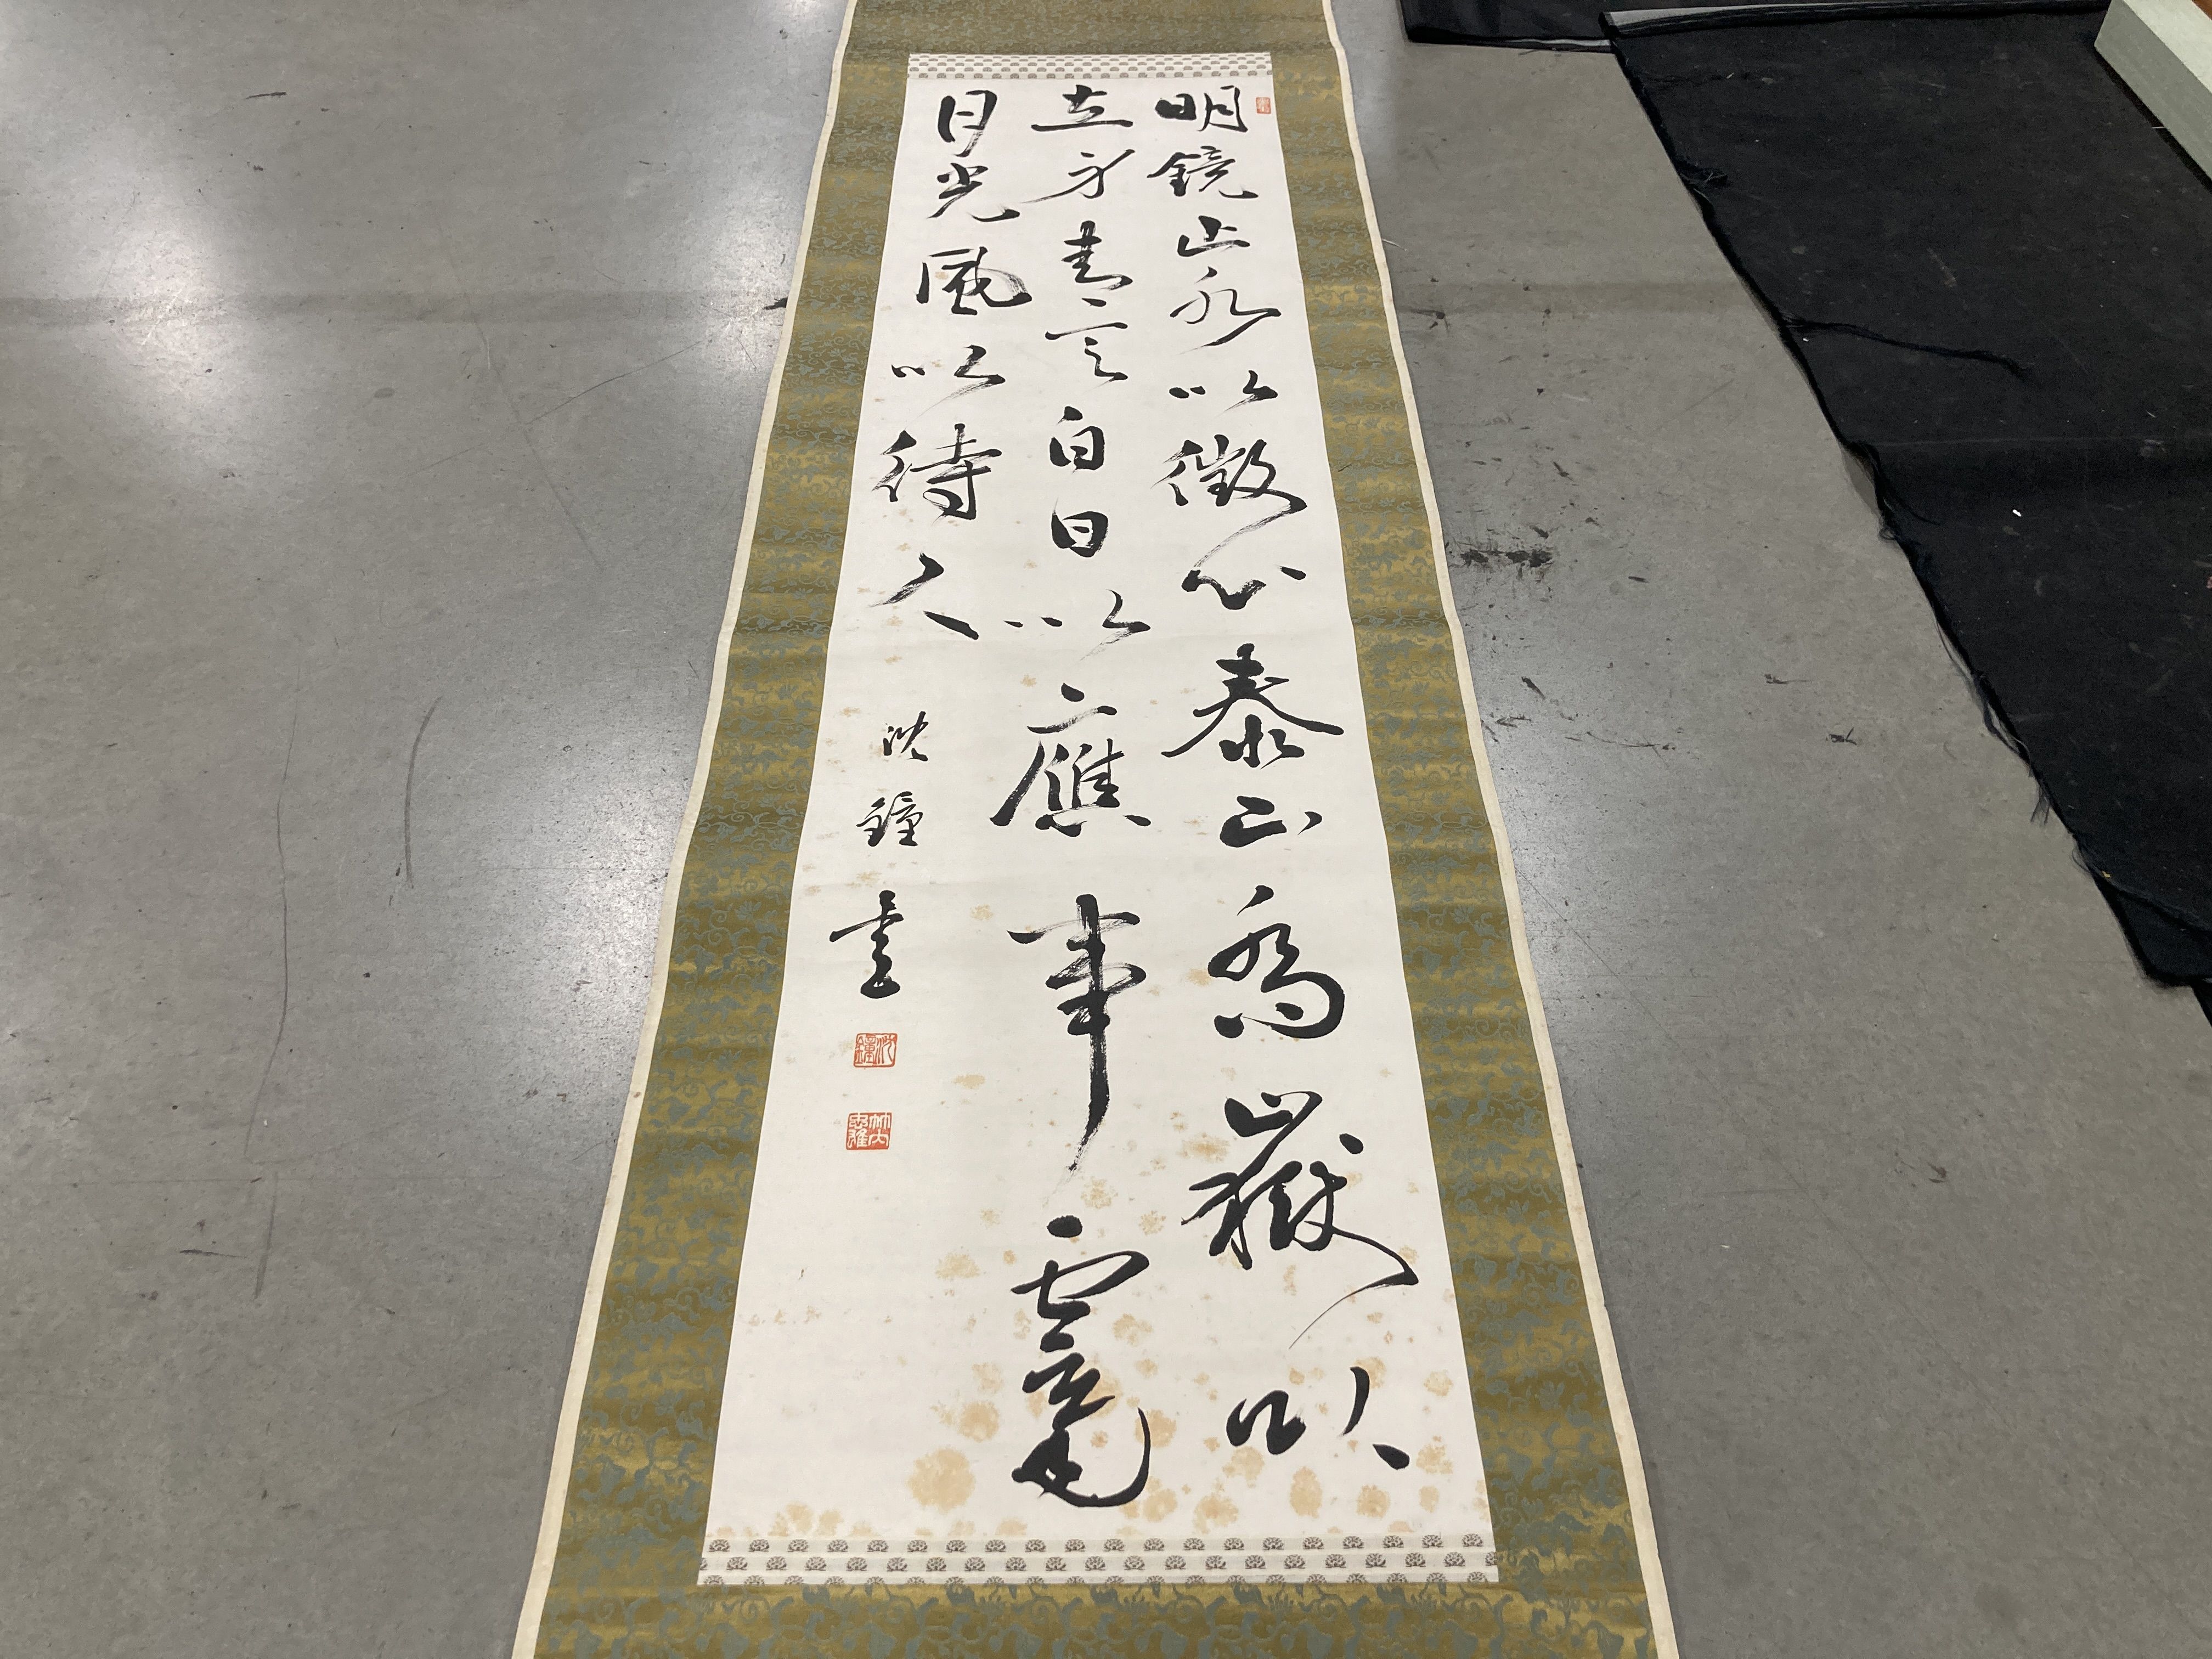 明鏡止水以澂心泰山喬嶽以
立身青天白日以應事霽
月光風以待人
沈鐘書
沈鐘